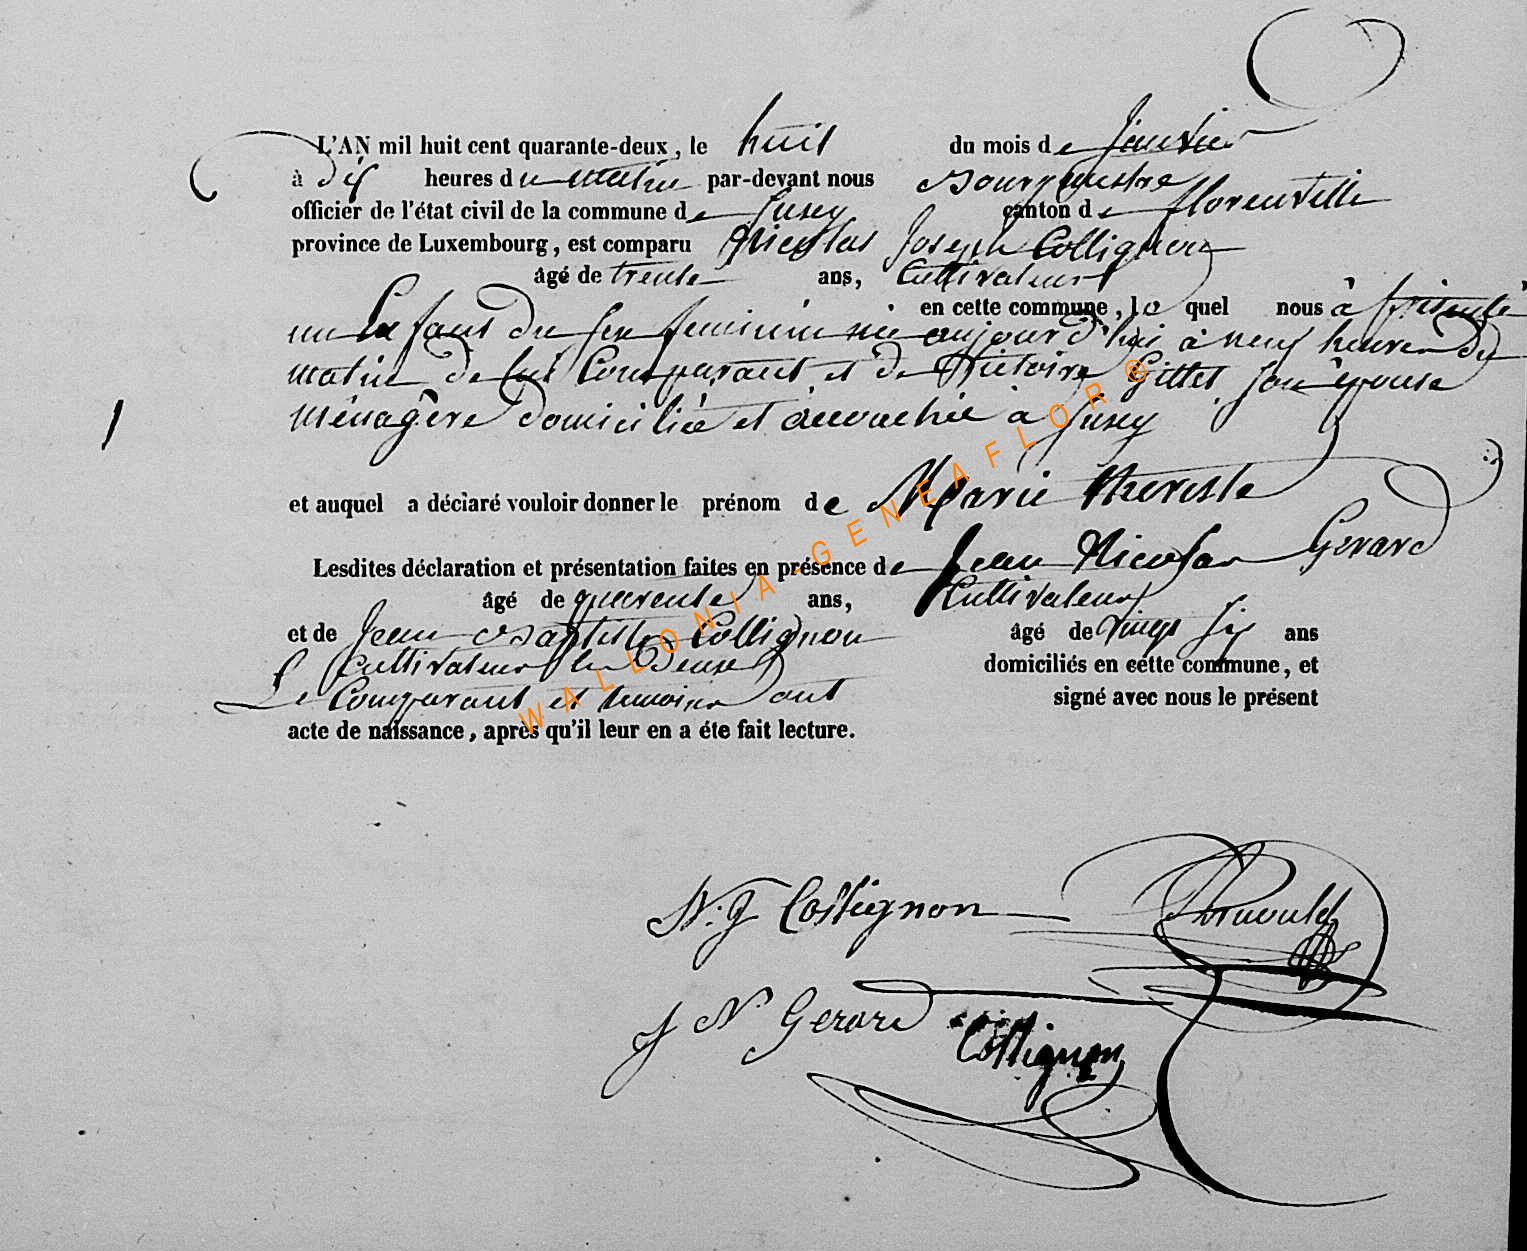 L'AN mil huit cent quarante-deux, le huit du mois de Janvier
à dix heures du matin par-devant nous Bourgmestre
officier de l'état civil de la commune de Jusey canton de florenville
province de Luxembourg, est comparu Nicolas Joseph Collignon
âgé de trente ans, Cultivateur
en cette commune, le quel nous à présenté
un Enfant du sex feminin née aujourd'hui à neuf heures du
matin de lui Comparant et de Victoire Gillet son épouse
ménagère domiciliée et accouchée à Jusey
1
et auquel a déclaré vouloir donner le prénom de Marie therese
Lesdites déclaration et présentation faites en présence de Jean Nicolas Gerard
âgé de quarente ans, Cultivateur
et de Jean Baptiste Collignon âgé de vingt six ans
Cultivateur les Deux domiciliés en cette commune, et
Le Comparant et temoins ont signé avec nous le présent
acte de naissance, après qu'il leur en a éte fait lecture.
WALLONIA-GENEAFLOR ®
N. J Collignon
J N. Gerard Collignon